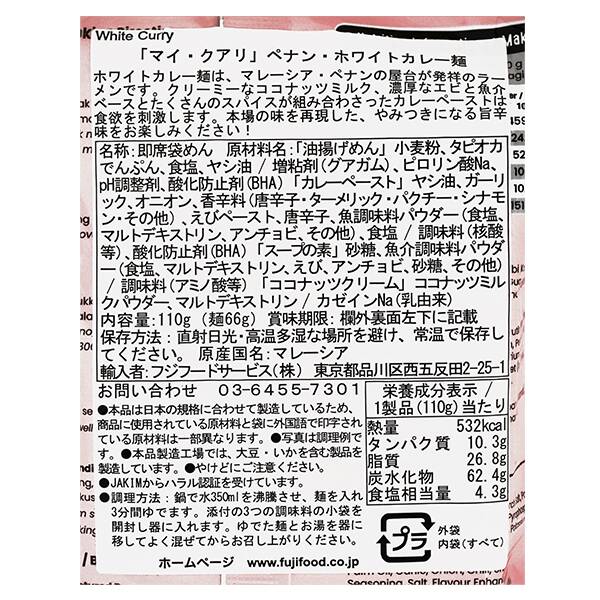 White Curry
「マイ・クアリ」ペナン・ホワイトカレー麺
ホワイトカレー麺は、マレーシア・ペナンの屋台が発祥のラー
メンです。クリーミーなココナッツミルク、濃厚なエビと魚介
ベースとたくさんのスパイスが組み合わさったカレーペーストは
食欲を刺激します。本場の味を再現した、やみつきになる旨辛
味をお楽しみください！
名称：即席袋めん 原材料名：「油揚げめん」小麦粉、タピオカ
でんぷん、食塩、ヤシ油 / 増粘剤(グアガム)、ピロリン酸Na、
pH調整剤、酸化防止剤(BHA)「カレーペースト」ヤシ油、ガーリ
ック、オニオン、香辛料(唐辛子・ターメリック・パクチー・シナモ
ン・その他)、えびペースト、唐辛子、魚調味料パウダー(食塩、
マルトデキストリン、アンチョビ、その他)、食塩 / 調味料(核酸
等)、酸化防止剤(BHA)「スープの素」砂糖、魚介調味料パウダ
ー(食塩、マルトデキストリン、えび、アンチョビ、砂糖、その他)
/ 調味料(アミノ酸等)「ココナッツクリーム」ココナッツミル
クパウダー、マルトデキストリン / カゼインNa(乳由来)
内容量：110g (麺66g) 賞味期限：欄外裏面左下に記載
保存方法：直射日光・高温多湿な場所を避け、常温で保存し
てください。 原産国名：マレーシア
輸入者：フジフードサービス(株) 東京都品川区西五反田2-25-1
お問い合わせ 03-6455-7301
●本品は日本の規格に合わせて製造しているため、
商品に使用されている原材料と袋に外国語で印字され
ている原材料は一部異なります。●写真は調理例で
す。●本品製造工場では、大豆・いかを含む製品を
製造しています。●やけどにご注意ください。
●JAKIMからハラル認証を受けています。
●調理方法：鍋で水350mlを沸騰させ、麺を入れ
3分間ゆでます。添付の3つの調味料の小袋を
開封し器に入れます。ゆでた麺とお湯を器に
移してよく混ぜてからお召し上がりください。
ホームページ www.fujifood.co.jp
栄養成分表示 /
1製品(110g)当たり
熱量 532kcal
タンパク質 10.3g
脂質 26.8g
炭水化物 62.4g
食塩相当量 4.3g
プラ
外袋
内袋(すべて)
Seasoning, Salt, Flavour Enhan